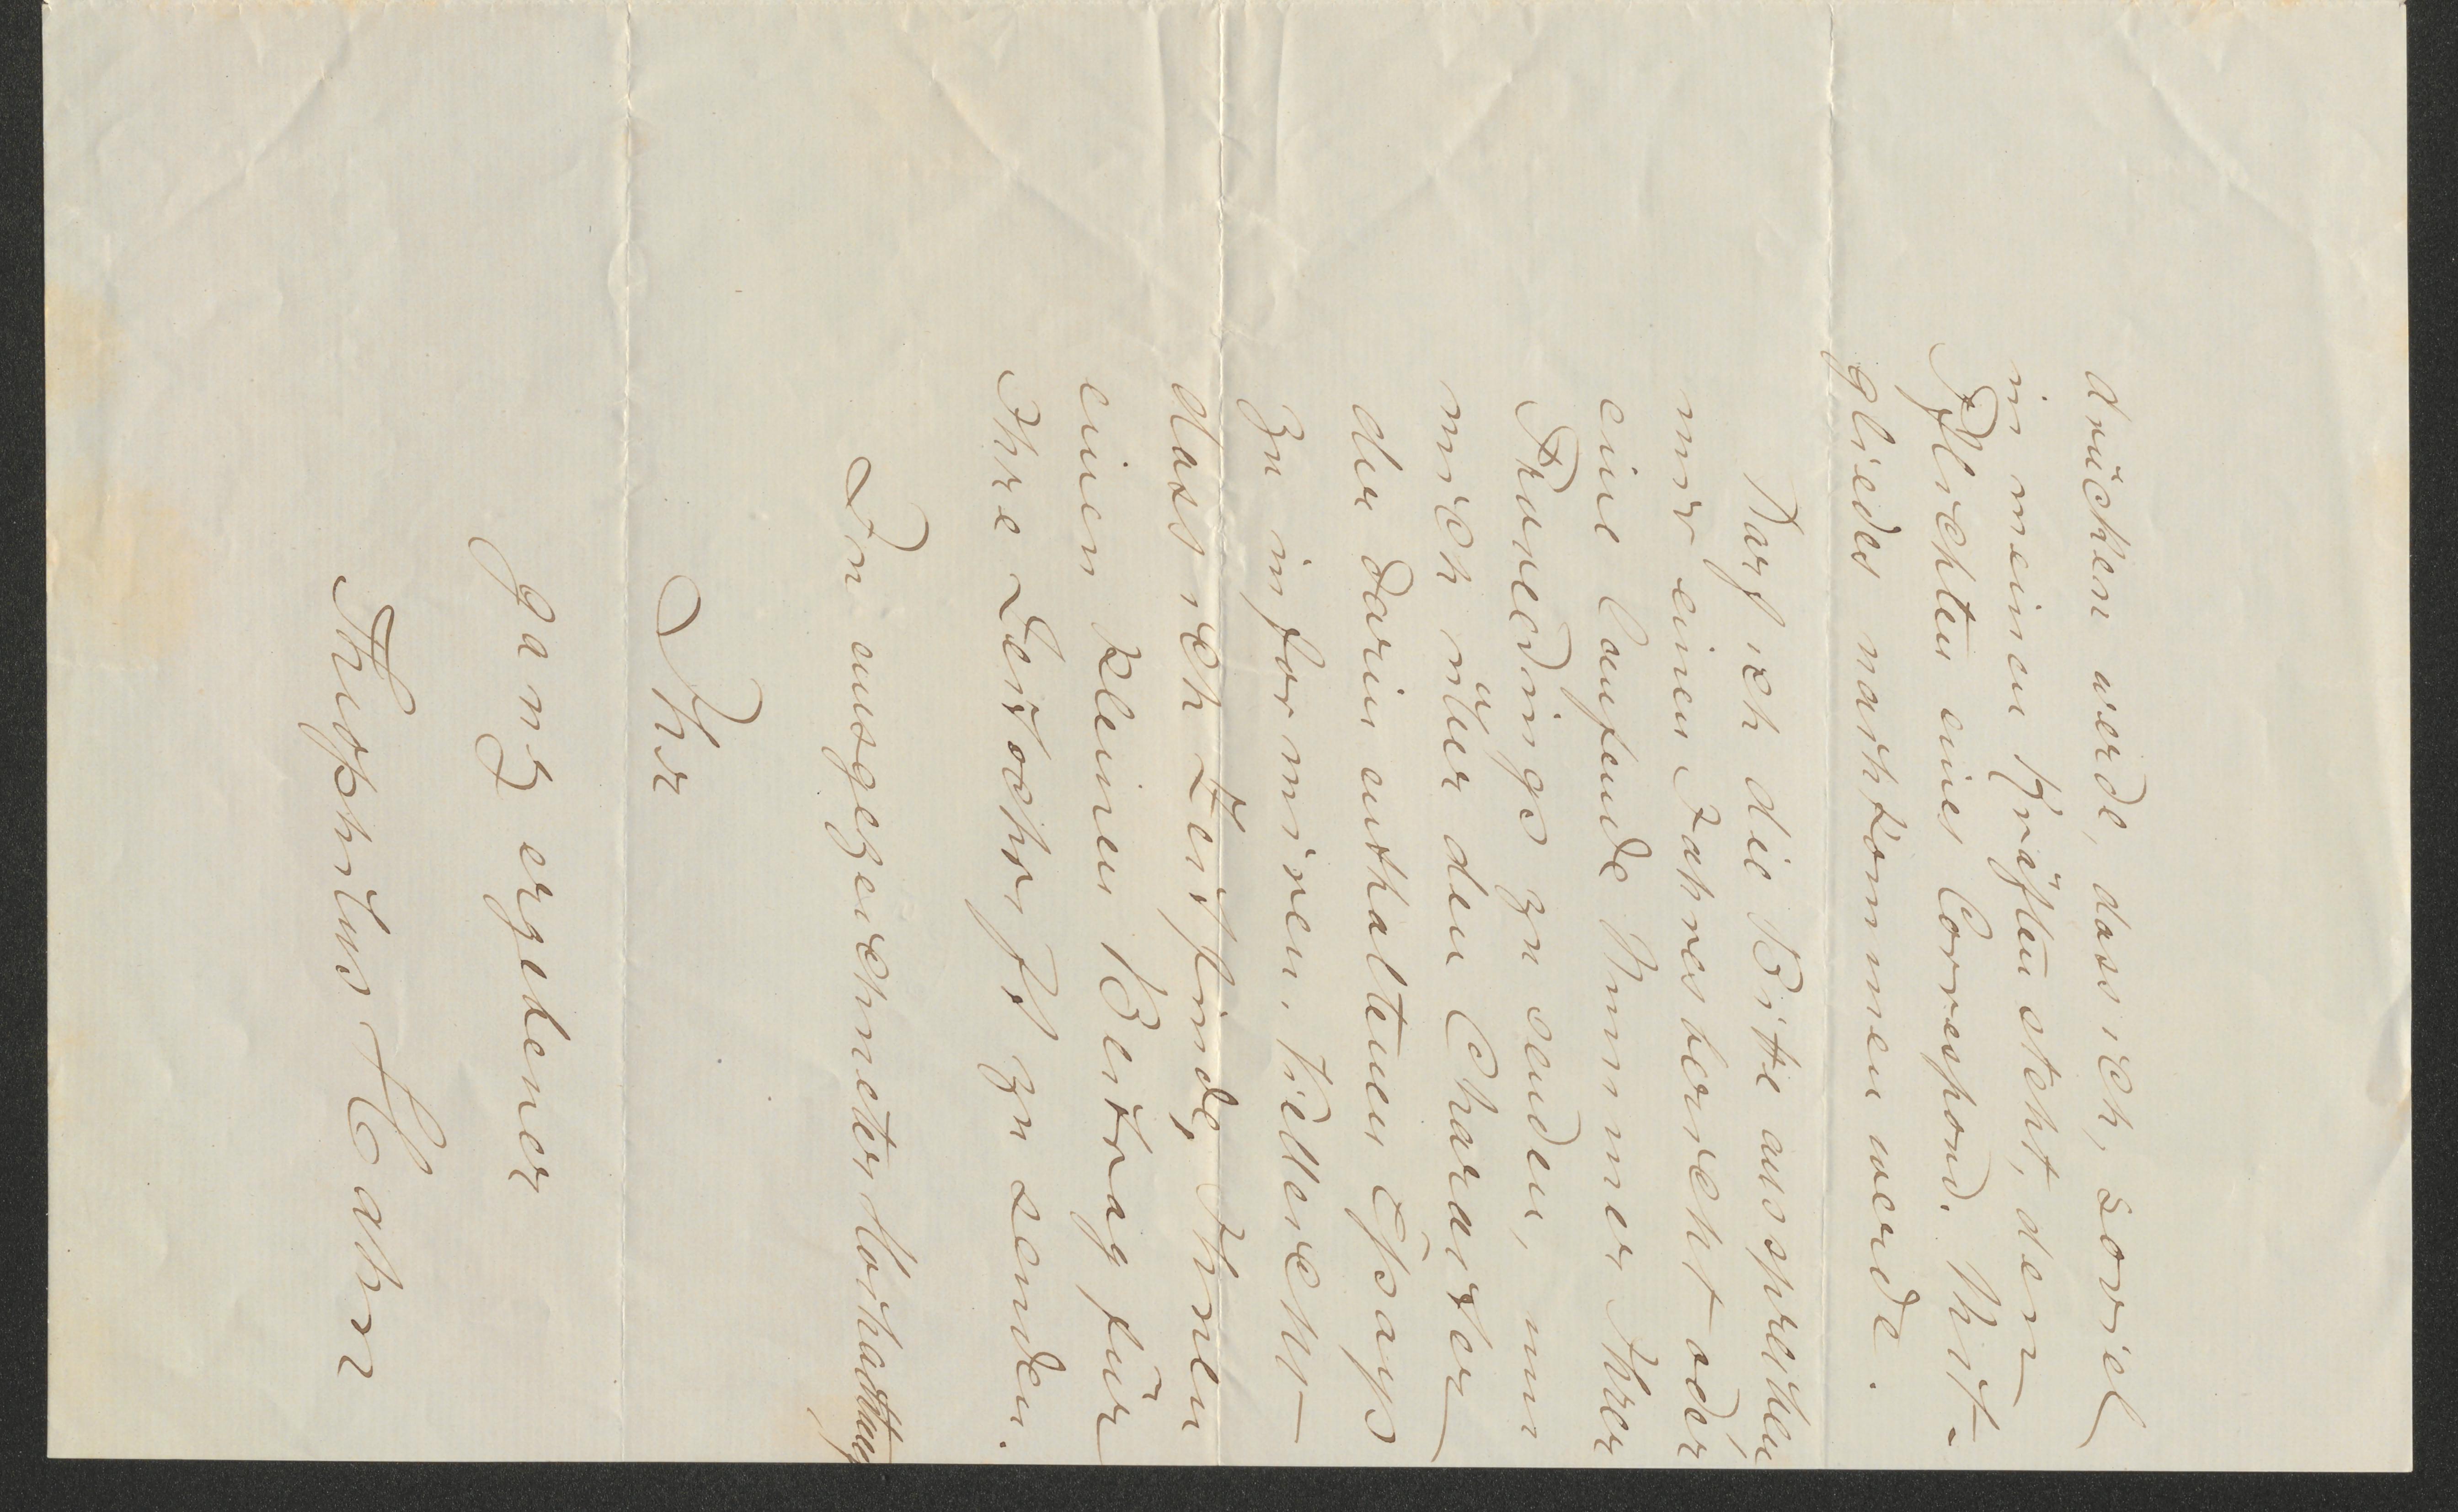 drücken werde, dass ich, soviel
in meinen Kräften steht, den
Pflichten eines Correspond. Mit-
gliedes nachkommen werde.
Darf ich die Bitte aussprechen,
mir einen Jahresbericht oder
eine laufende Nummer Ihrer
Proceedings zu senden, um
mich über den Charakter
der darin enthaltenen Essays
zu informiren. Vielleicht
dass ich Zeit finde, Ihnen
einen kleinen Beitrag für
Ihre Zeitschrift zu senden.
In ausgezeichneter Hochachtung
Ihr
ganz ergebener
Theophilus Hahn